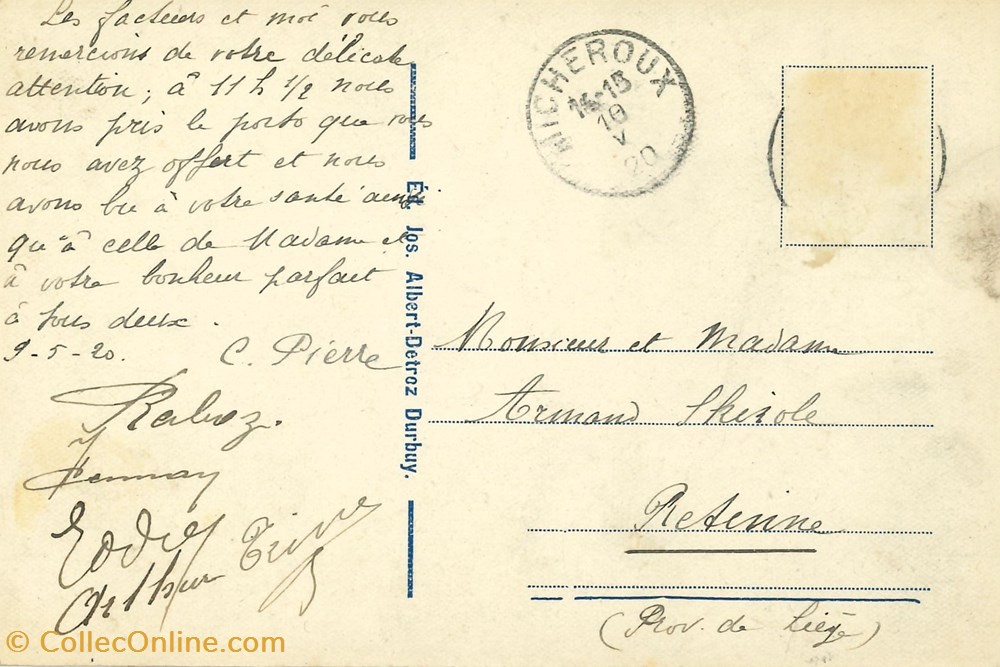 Les facteurs et moi vous
remercions de votre délicate
attention; à 11 h 1/2 nous
avons pris le porto que vous
nous avez offert et nous
avons bu à votre santé ainsi
qu'à celle de Madame et
à votre bonheur parfait
à tous deux.
9-5-20. C. Pierre
Arthur
Éd. Jos. Albert-Detroz Durbuy.
MICHEROUX
14-15
10
V
20
Monsieur et Madame
Armand
Retinne
(Prov. de Liége)
© CollecOnline.com